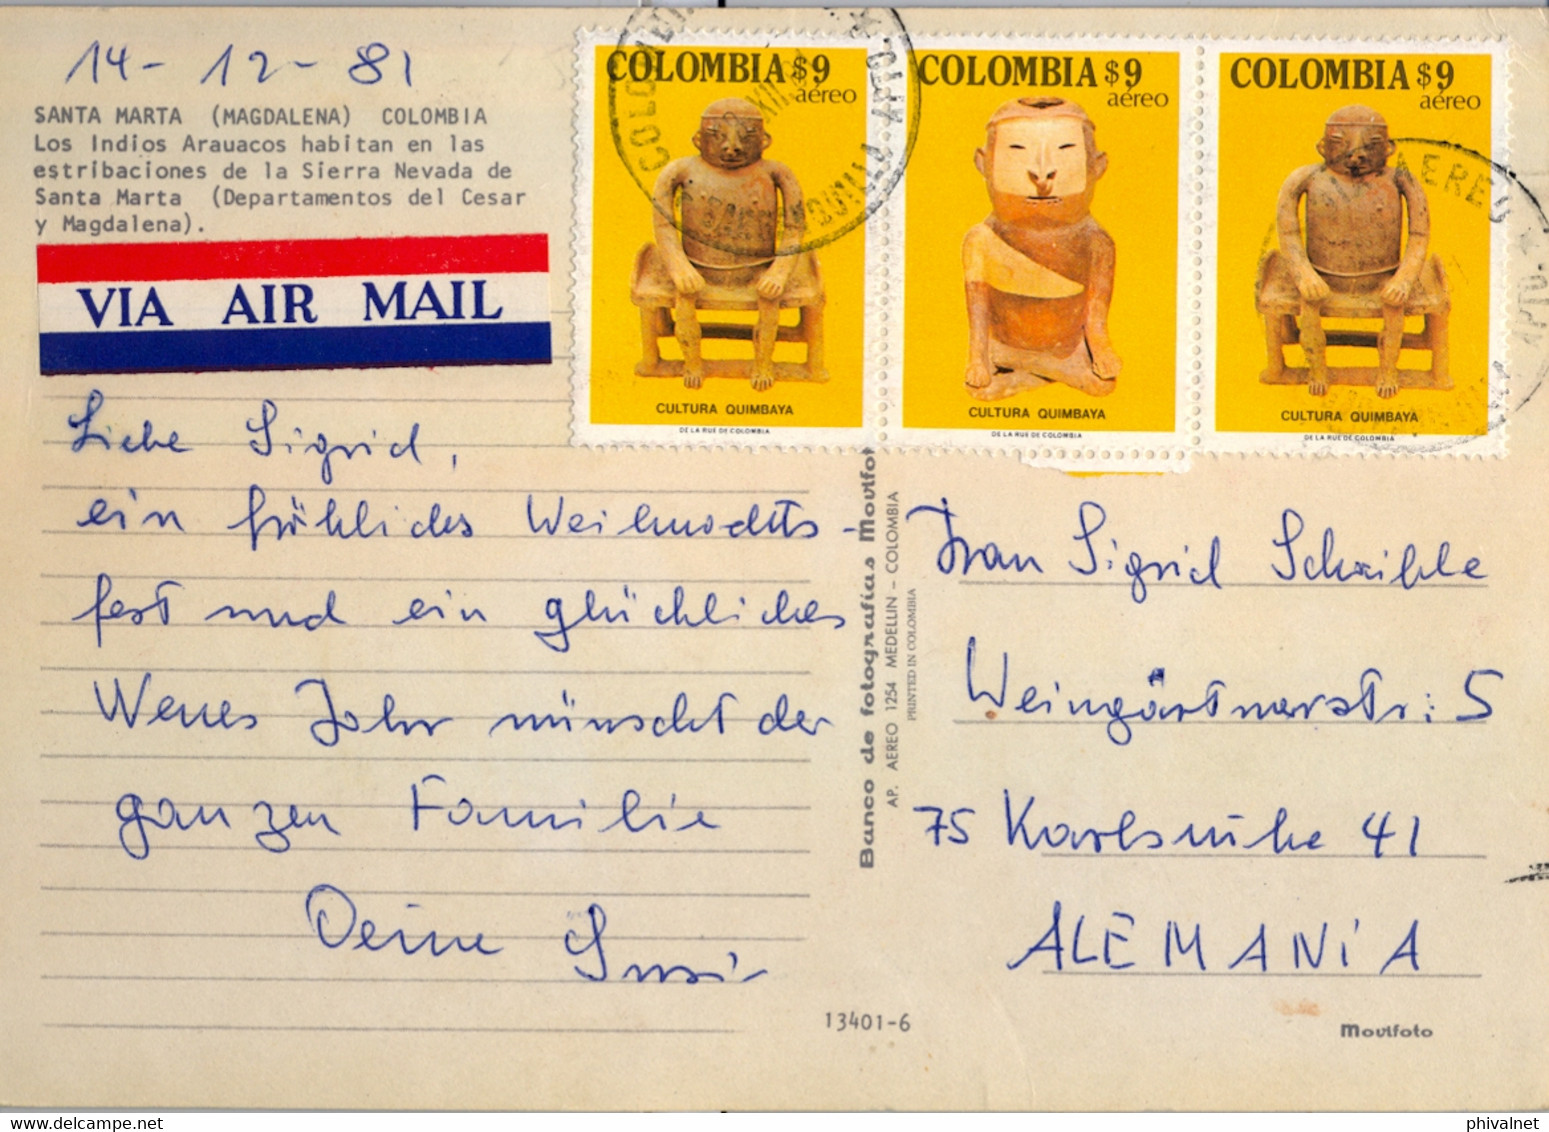 14-12-81
SANTA MARTA (MAGDALENA) COLOMBIA
Los Indios Arauacos habitan en las
estribaciones de la Sierra Nevada de
Santa Marta (Departamentos del Cesar
y Magdalena).
VIA AIR MAIL
Liebe Sigrid,
ein fröhliches Weihnachts-
fest und ein glückliches
Neues Jahr wünscht der
ganzen Familie
Deine Susi
COLOMBIA $9
aéreo
CULTURA QUIMBAYA
DE LA RUE DE COLOMBIA
COLOMBIA $9
aéreo
CULTURA QUIMBAYA
DE LA RUE DE COLOMBIA
COLOMBIA $9
aéreo
CULTURA QUIMBAYA
DE LA RUE DE COLOMBIA
Banco de fotografías Movifo
AP. AEREO 1254 MEDELLIN - COLOMBIA
PRINTED IN COLOMBIA
Frau Sigrid Schaible
Weingärtnerstr. 5
75 Karlsruhe 41
ALEMANIA
13401-6
Movifoto
phivalnet